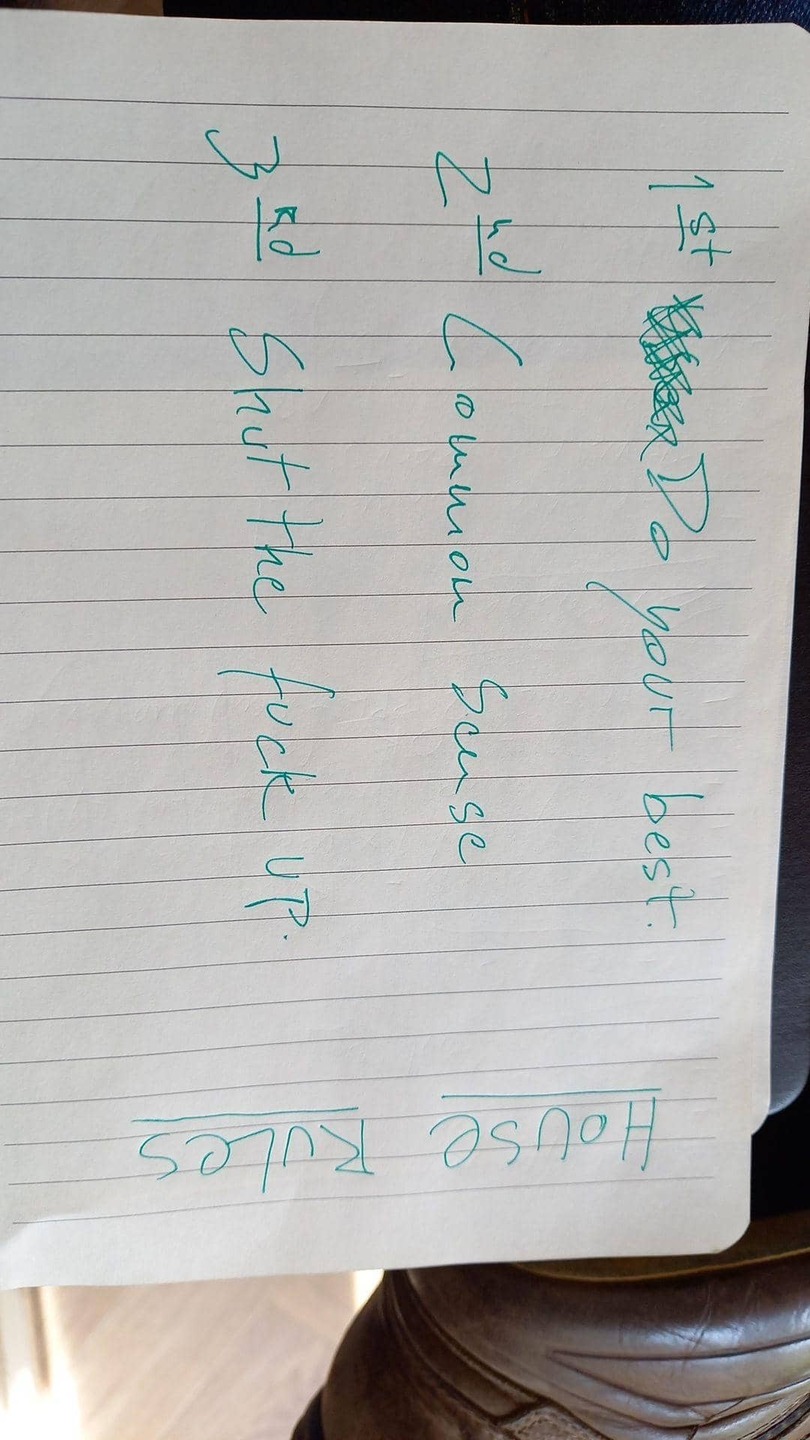 HOUSE RULES
1st Do your best.
2nd Common Sense
3rd Shut the fuck up.